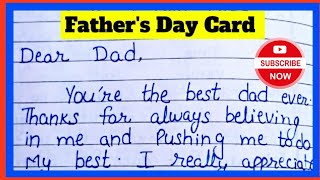 Father's Day Card
SUBSCRIBE
NOW
Dear Dad,
You're the best dad ever.
Thanks for always believing
in me and Pushing me to do
My best. I really appreciate